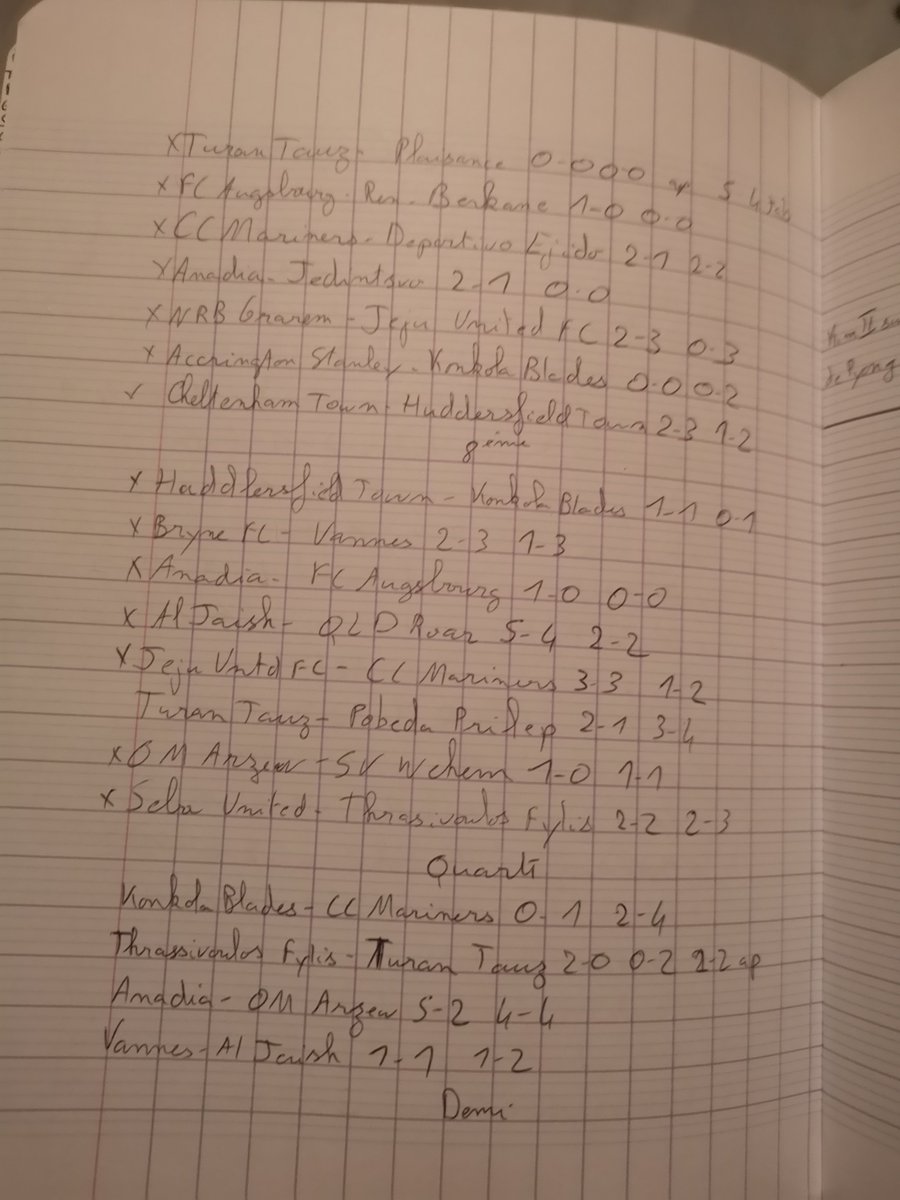 x Turan Tauz - Plaisance 0-0 0-0 ap 5 4 tab
x FC Augsbourg - Ren. Berkane 1-0 0-0
x CC Mariners - Deportivo Ejido 2-1 2-2
x Anadia - 2-1 0-0
x WRB Gharem - Jeju United FC 2-3 0-3
x Accrington Stanley - Konkola Blades 0-0 0-2
✓ Cheltenham Town - Huddersfield Town 2-3 1-2
8ème
x Haddlersfield Town - Konkola Blades 1-1 0-1
x Bryne FC - Vannes 2-3 1-3
x Anadia - FC Augsbourg 1-0 0-0
x Al Jaish - QLD Roar 5-4 2-2
x Jeju Untd FC - CC Mariners 3-3 1-2
Turan Tauz - Pobeda Prilep 2-1 3-4
x OM Arzew - SV Wehem 1-0 1-1
x Seba United - Thrasivoulos Fylis 2-2 2-3
Quarts
Konkola Blades - CC Mariners 0-1 2-4
Thrassivoulos Fylis - Turan Tauz 2-0 0-2 2-2 ap
Anadia - OM Arzew 5-2 4-4
Vannes - Al Jaish 1-1 1-2
Demi